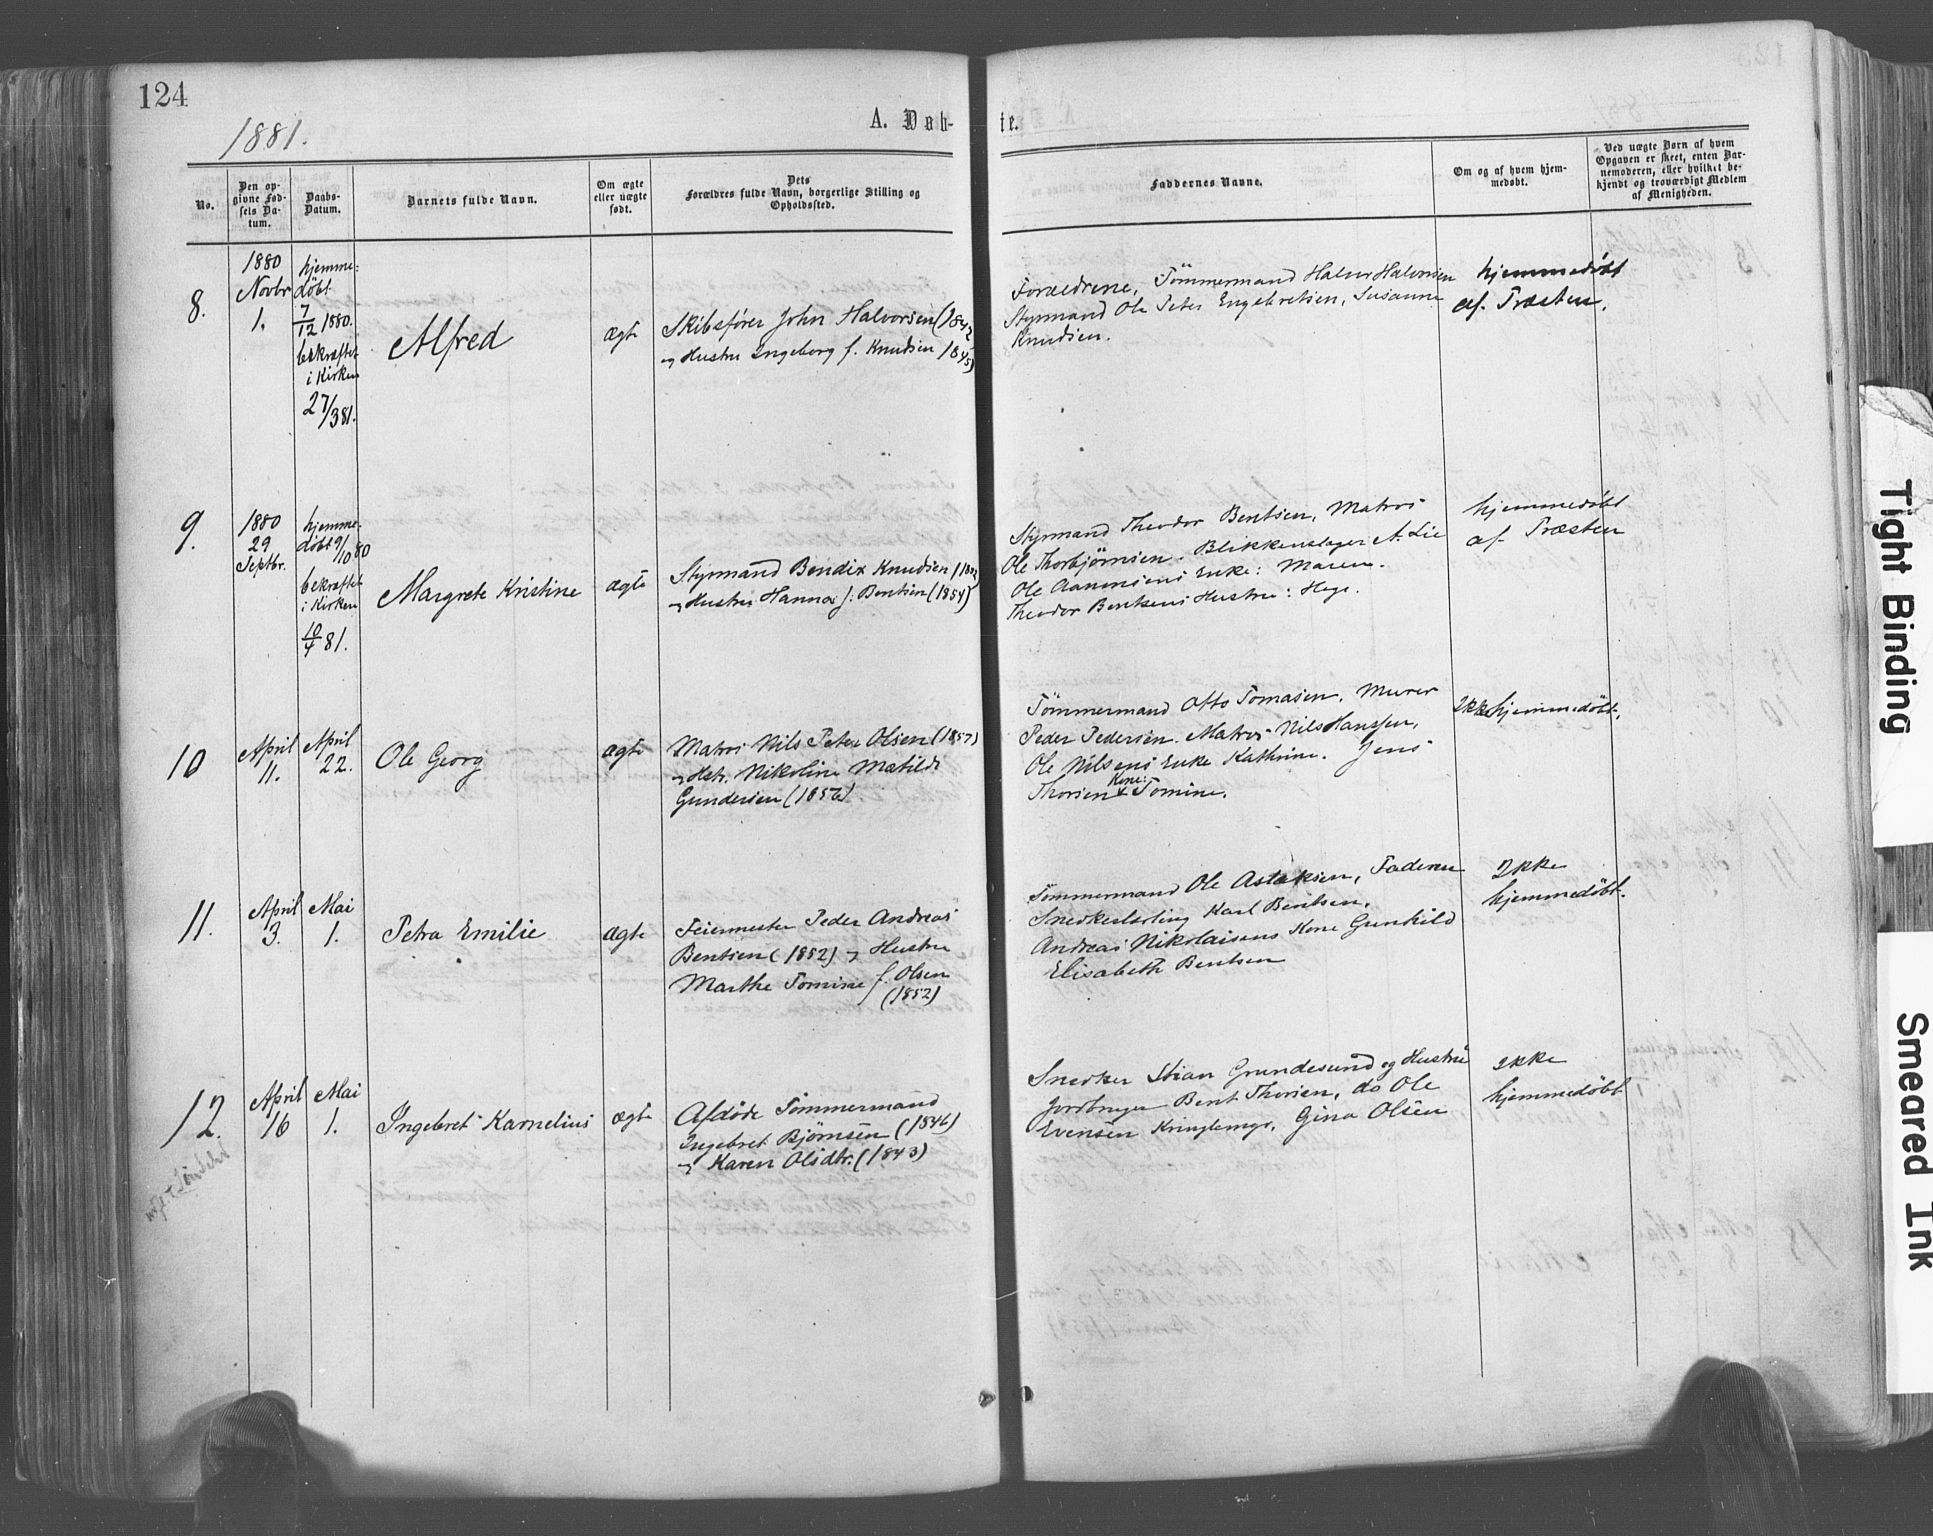 124
1881.
A. Døb-
te.
No.
Den op-
givne Fød-
sels Da-
tum.
Daabs-
Datum.
Barnets fulde Navn.
Om ægte
eller uægte
født.
Dets
Forældres fulde Navn, borgerlige Stilling og
Opholdssted.
Faddernes Navne.
Om og af hvem hjem-
medøbt.
Ved uægte Børn af hvem
Opgaven er skeet, enten Bar-
nemoderen, eller hvilket be-
kjendt og troværdigt Medlem
af Menigheden.
8.
1880
Novbr
1.
hjemme-
døbt
7/12 1880.
bekræftet
i Kirken
27/3 81.
Alfred
ægte
Skibsfører John Halvorsen (1842
og Hustru Ingeborg f. Knudsen 1845)
Forældrene, Tömmermand Halvor Halvorsen
Styrmand Ole Peter Engebretsen, Susanne
Knudsen.
hjemmedøbt
af Præsten.
9.
1880
29
Septbr.
hjemme-
døbt 9/10 80
bekræftet
i Kirken
10/4 81.
Margrete Kristine
ægte
Styrmand Bendix Knudsen
og Hustru Hanna f. Bentsen (1854)
Styrmand Theodor Bentsen, Matros
Ole Thorbjørnsen. Blikkenslager A. Lie
Ole Aanensens Enke: Maren.
Theodor Bentsens Hustru: Hege.
hjemmedøbt
af Præsten
10
April
11.
April
22.
Ole Georg
ægte
Matros Nils Peter Olsen (1857)
og Hstr. Nikoline Matilde
Gundersen (1856)
Tömmermand Otto Tomasen, Murer
Peder Pedersen. Matros Nils Hanssen,
Ole Nilsens Enke Kathrine. Jens
Thorsen Kone: Tomine.
Ikke hjemmedøbt.
11.
April
3.
Mai
1.
Petra Emilie
ægte
Feiermester Peder Andreas
Bentsen (1852) og Hustru
Marthe Tomine f. Olsen
(1852)
Tömmermand Ole Aslaksen, Faderen
Snedkerlærling Karl Bentsen,
Andreas Nikolaisens Kone Gunhild
Elisabeth Bentsen
Ikke
hjemmedøbt.
12.
April
16
Mai
1.
Ingebret Karnelius
ægte
Afdøde Tömmermand
Ingebret Bjørnsen (1846)
og Karen Olsdtr. (1843)
Snedker Stian Grundesund og Hustru
Jordbruger Bent Thorsen, do Ole
Evensen Kringlemyr, Gina Olsen
Ikke
hjemmedøbt
Tight Binding
Smeared Ink